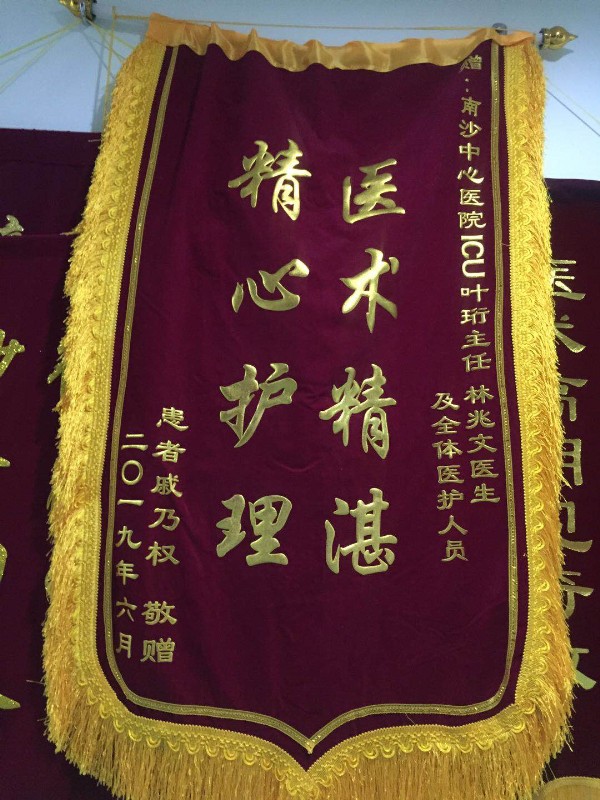 赠：南沙中心医院ICU叶珩主任 林兆文医生
及全体医护人员
医术精湛
精心护理
患者戚乃权 敬赠
二〇一九年六月